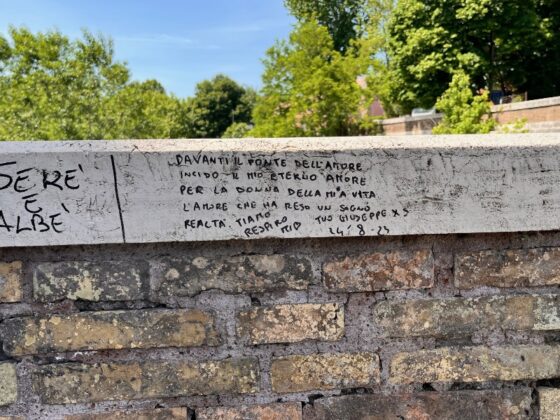 SERE'
E
ALBÈ
DAVANTI IL PONTE DELL'AMORE
INCIDO IL MIO ETERNO AMORE
PER LA DONNA DELLA MIA VITA
L'AMORE CHE HA RESO UN SOGNO
REALTÀ TIAMO TUO GIUSEPPE X S
RESPIRO MIO♡ 24-8-23